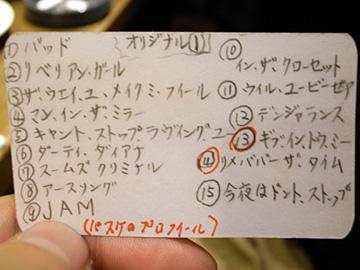 オリジナル①
① バッド
② リベリアン.ガール
③ ザ.ウエイ.ユー.メイクミー.フィール
④ マン.イン.ザ.ミラー
⑤ キャント.ストップラヴィング.ユー
⑥ ダーティ.ダイアナ
⑦ スームズ クリミナル
⑧ アースソング
⑨ JAM
(バスケのプロフィール)
⑩
イン.ザ.クローセット
⑪ ウィル.ユー.ビーゼア
⑫ デンジャランス
⑬ ギブイン.トゥ.ミー
⑭ リメンバー ザ.タイム
⑮ 今夜はドント.ストップ